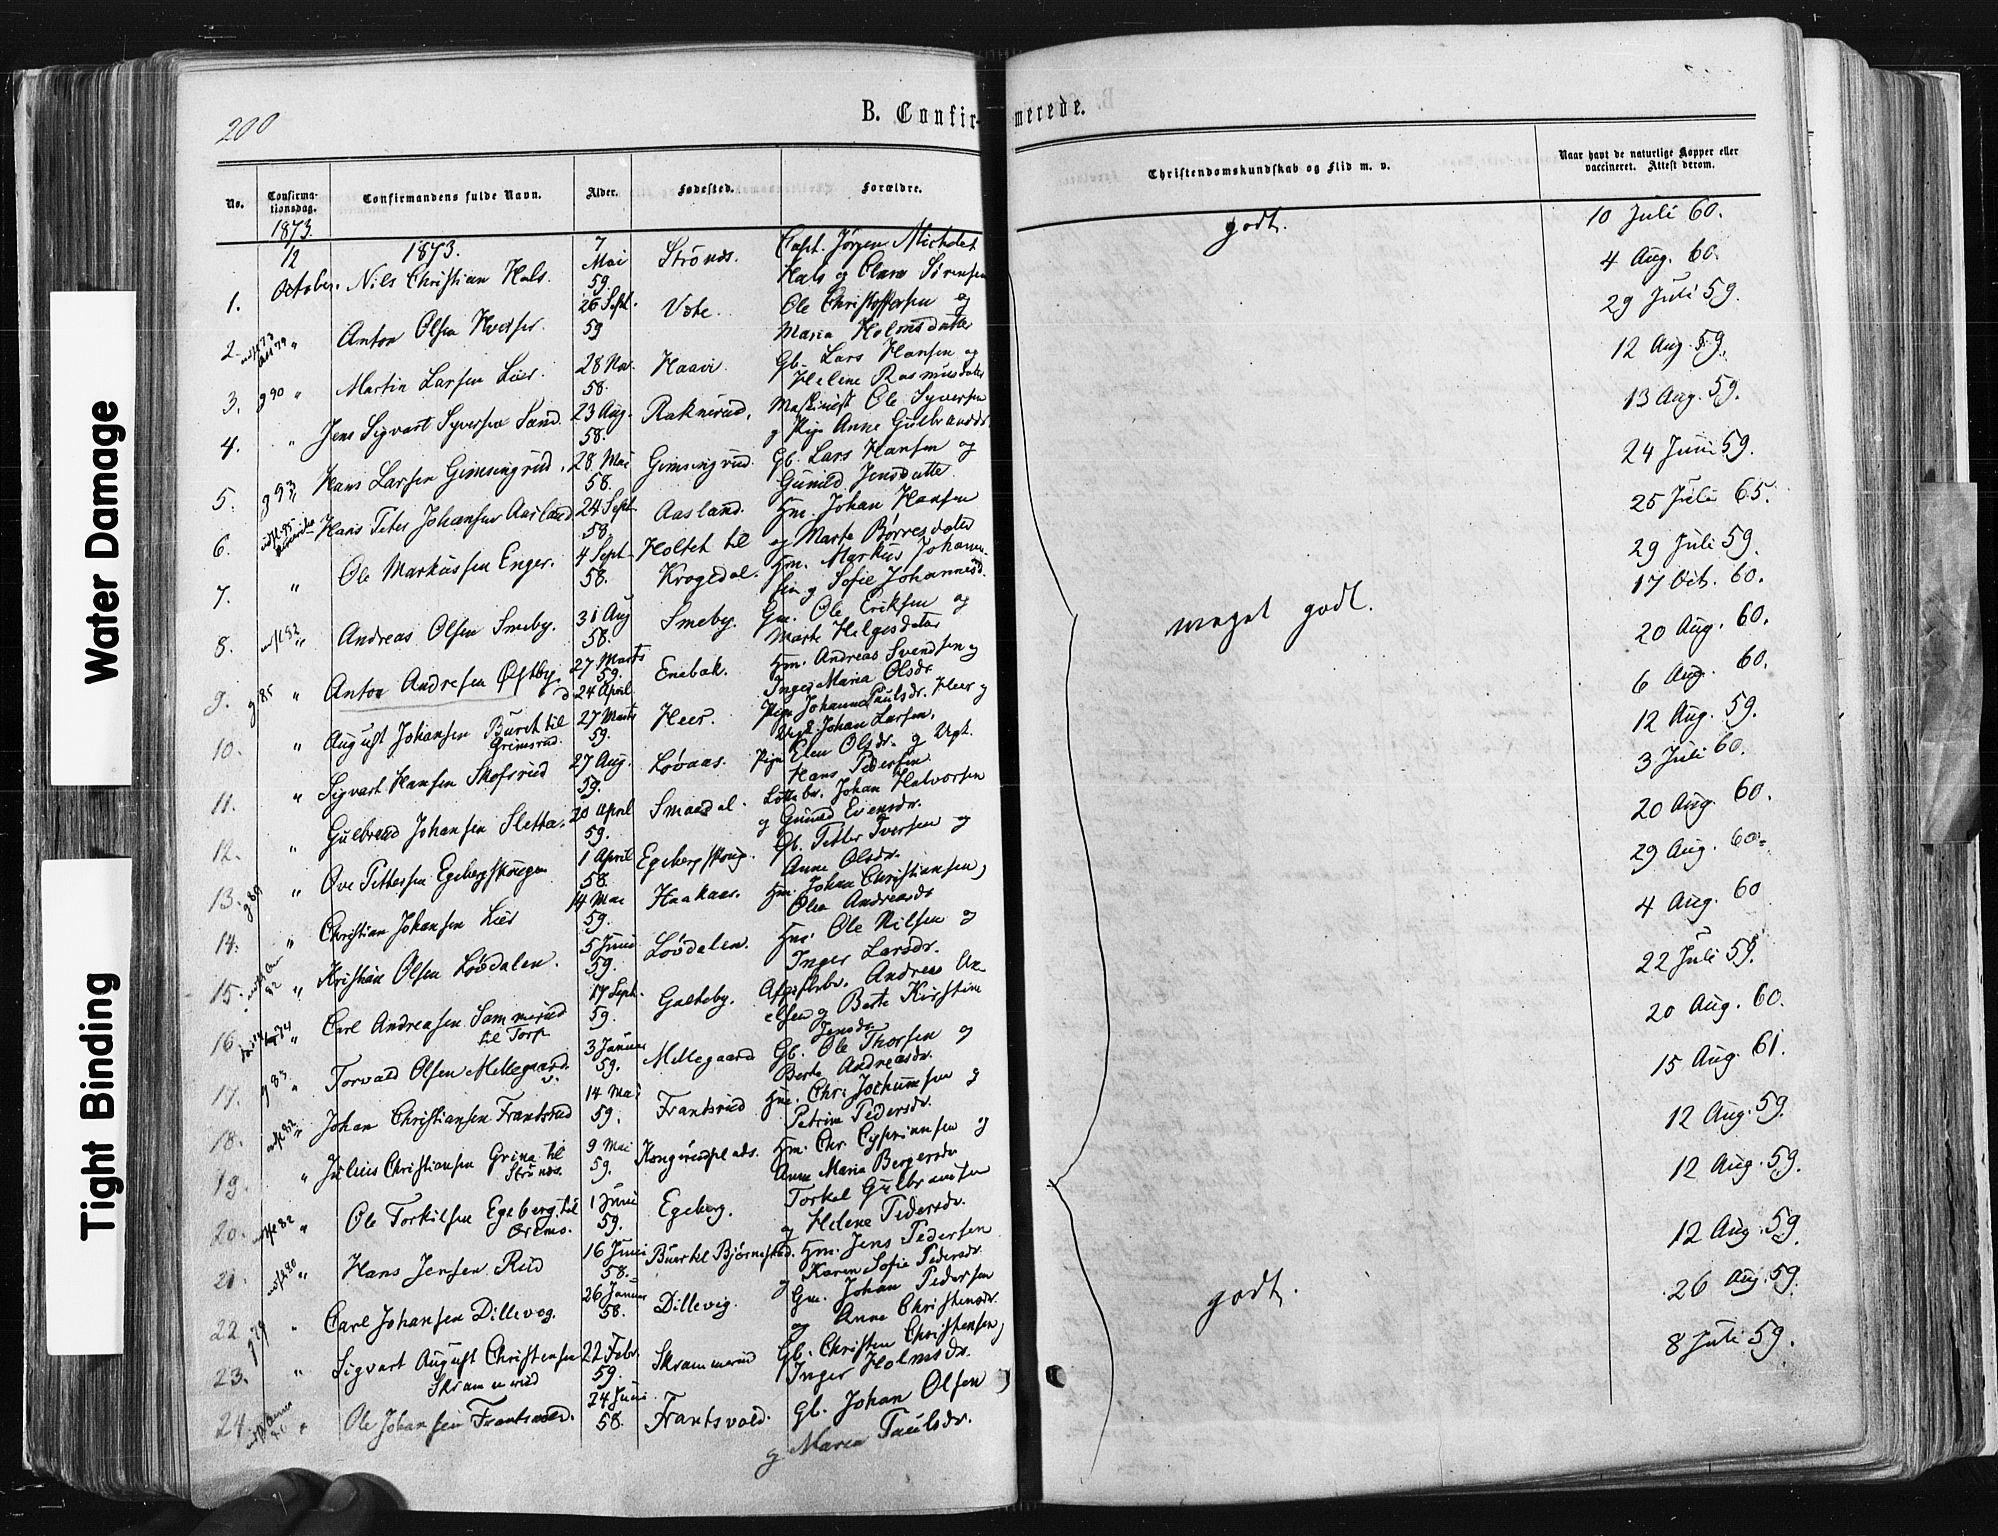 200
B. Confirmerede.
No.
Confirmationsdag.
Confirmandens fulde Navn.
Alder.
Fødested.
Forældre.
Christendomskundskab og Flid m. v.
Naar havt de naturlige Kopper eller vaccineret. Attest derom.
1873.
1873.
1. 12 October. Nils Christian Hals. 7 Mai 59. Strönæs. Capt. Jörgen Michelet Hals og Clara Sörensen
2. " Anton Olsen 26 Sept. 59 Ole Christoffersen og Maria Holmsdatter
3. g 90 " Martin Larsen Lier. 28 Nov. 58. Haavi. Gb. Lars Hansen og Helene Rasmusdatter
4. " Jens Sigvart Syversen Sand. 23 Aug. 58. Raknerud. Maskinist Ole Syversen g Pige Anne Gulbrandsdr.
5. g 93 " Hans Larsen Gimsingrud. 28 Mai 58. Gimsingrud. Gb. Lars Hansen og Gunild Jensdatter
6. Hans Peter Johansen Aasland 24 Sept. 58. Aasland. Hm. Johan Hansen og Marte Børresdatter
7. " Ole Markussen Enger. 4 Sept. 58. Holtet til Krogedal. Hm. Markus Johannesen g Sofie Johannesd.
8. " Andreas Olsen Smeby. 31 Aug 58. Smeby. Gm. Ole Eriksen og Marte Helgesdatter
9. g 85 " Anton Andresen Østby. 27 Marts 59. Enebak. Hm. Andreas Svendsen og Inger Maria Olsdr.
d. 24 April
10. " August Johansen Buret til Grimsrud. 27 Marts 59. Heer. Pige Johanne Paulsdr. Heer g Ungk. Johan Larsen.
11. " Sigvart Hansen Skofsrud 27 Aug. 59. Løvaas. Pige Elen Olsdr. g Ungk. Hans Pedersen
12. " Gulbrand Johansen Sletta. 20 April 59. Smaadal. Johan Halvorsen g Gunild Evensdr.
13. g 89 " Ove Pettersen Egebergskougen 1 April 58. Egebergskoug. Gb. Petter Iversen og Anne Olsdr.
14. " Christian Johansen Lier 14 Mai 59. Haakaas. Hm. Johan Christiansen g Olea Andreasdr
15. " Kristian Olsen Løvdalen. 5 Juni 59. Løvdalen. Hm. Ole Nilsen og Inger Larsdr.
16. " Carl Andreasen Sammerud til Torp 17 Sept. 59. Galteby. Andreas Axelsen g Berte Kirstine Jensdr.
17. g 83 " Torvald Olsen Mellegaard. 3 Januar 59. Mellegaard Gb. Ole Thorsen og Berte Andreasdr.
18. " Johan Christiansen Frantsrud 14 Mai 59. Frantsrud Hm. Chr. Jochumsen g Petrine Pedersdr.
19. " Julius Christiansen Grina til Strönæs. 9 Mai 59. Kongerudplads. Hm. Chr. Cyprianssen og Anne Maria Bergersdr
20. " Ole Torkilsen Egeberg til 1 Juni 59. Egeberg. Torkel Gulbransen og Helene Pedersdr.
21. " Hans Jensen Rud 16 Juni 58. Buertil Bjørnestad. Hm. Jens Pedersen g Karen Sofie Pedersdr.
22. " Carl Johansen Dillevig. 26 Januar 58. Dillevig. Gm. Johan Pedersen og Anne Christensdr.
23. " Sigvart August Christensen Skrammerud 22 Febr. 59. Skrammerud Gb. Christen Christensen g Inger Holmsdr.
24. " Ole Johansen Frantsvold. 24 Juni 58. Frantsvold. Gb. Johan Olsen g Maren Paulsdr.
godt.
meget godt.
godt.
10 Juli 60.
4 Aug. 60.
29 Juli 59.
12 Aug. 59.
13 Aug. 59.
24 Juni 59.
25 Juli 65.
29 Juli 59.
17 Oct. 60.
20 Aug. 60.
6 Aug. 60.
12 Aug. 59.
3 Juli 60.
20 Aug. 60.
29 Aug. 60.
4 Aug. 60
22 Juli 59.
20 Aug. 60.
15 Aug. 61.
12 Aug. 59.
12 Aug. 59.
12 Aug. 59.
26 Aug. 59.
8 Juli 59.
Water Damage
Tight Binding